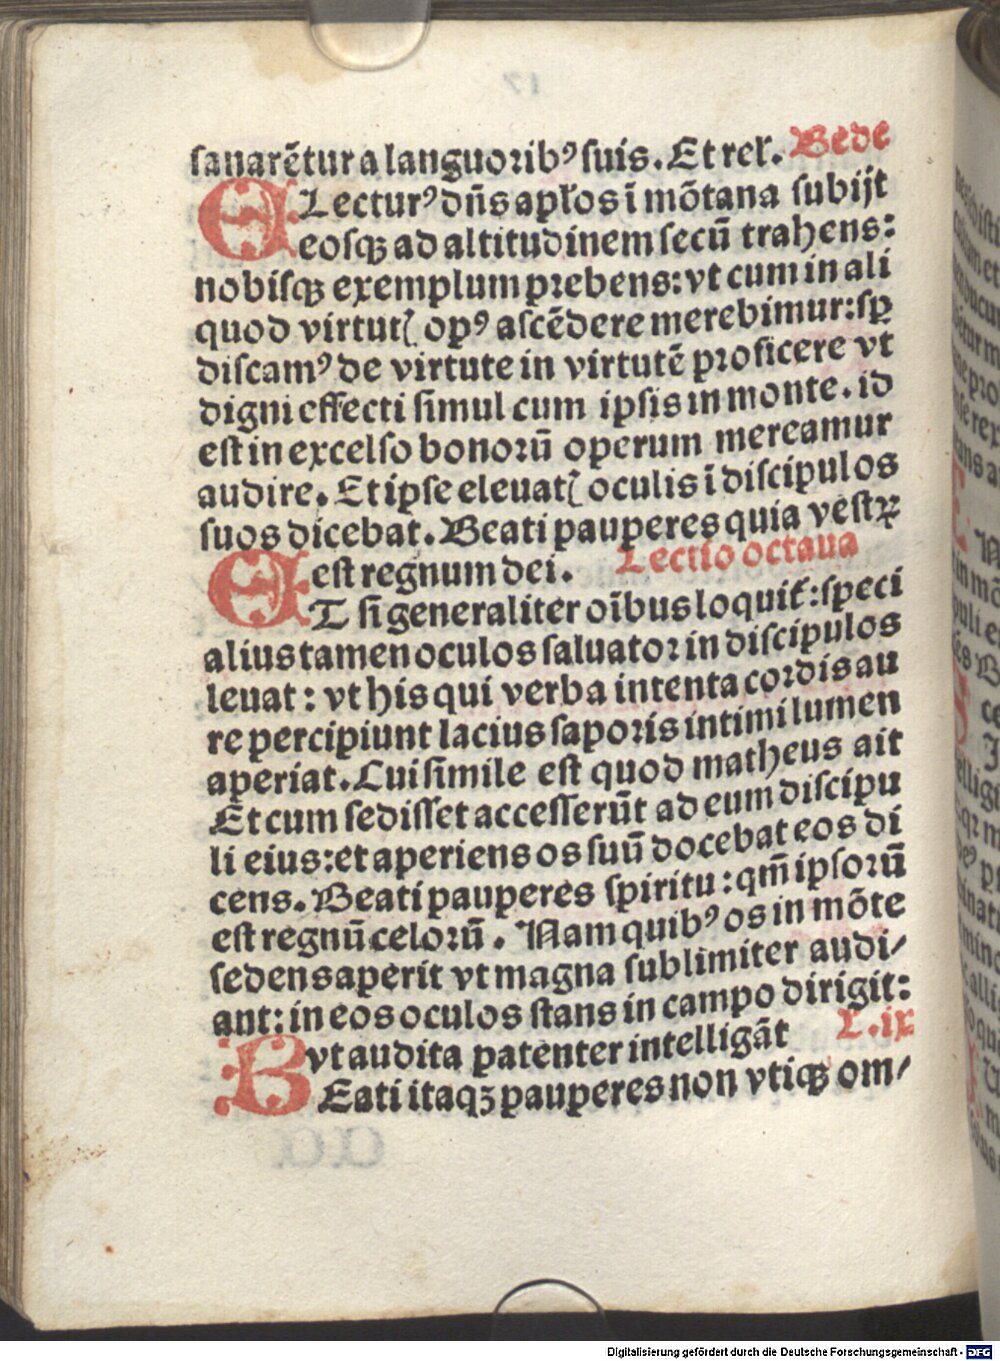 sanarētur a languoribꝰ suis. Et rel̃. Bede
ELecturꝰ dñs apl̃os ī mõtana subijt
eosqꝫ ad altitudinem secū trahens:
nobisqꝫ exemplum prebens: vt cum in ali
quod virtutꝭ opꝰ ascẽdere merebimur: sꝑ
discamꝰ de virtute in virtutē proficere vt
digni effecti simul cum ipsis in monte. id
est in excelso bonorū operum mereamur
audire. Et ipse eleuatꝭ oculis ī discipulos
suos dicebat. Beati pauperes quia vestꝝ
est regnum dei. Lectio octaua
ET si generaliter oībus loquit̃: speci
alius tamen oculos saluator in discipulos
leuat: vt his qui verba intenta cordis au
re percipiunt lacius saporis intimi lumen
aperiat. Cui simile est quod matheus ait
Et cum sedisset accesserūt ad eum discipu
li eius: et aperiens os suū docebat eos di
cens. Beati pauperes spiritu: qm̄ ipsorū
est regnū celorū. Nam quibꝰ os in mōte
sedens aperit vt magna sublimiter audi/
ant: in eos oculos stans in campo dirigit:
vt audita patenter intelligāt L. ix
BEati itaqꝫ pauperes non vtiqꝫ om/
Digitalisierung gefördert durch die Deutsche Forschungsgemeinschaft - DFG